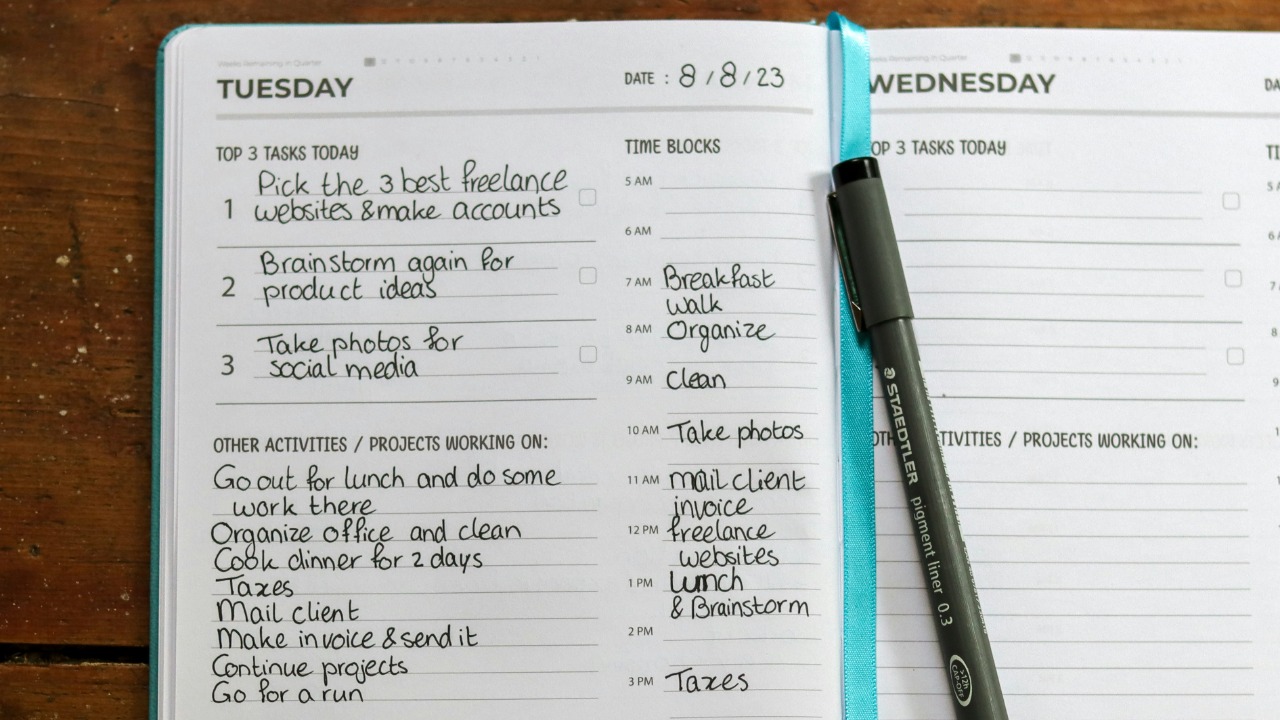 Weeks Remaining in Quarter
TUESDAY
DATE : 8 / 8 / 23
TOP 3 TASKS TODAY
1 Pick the 3 best freelance
websites & make accounts
2 Brainstorm again for
product ideas
3 Take photos for
social media
OTHER ACTIVITIES / PROJECTS WORKING ON:
Go out for lunch and do some
work there
Organize office and clean
Cook dinner for 2 days
Taxes
Mail client
Make invoice & send it
Continue projects
Go for a run
TIME BLOCKS
5 AM
6 AM
7 AM Breakfast
walk
8 AM Organize
9 AM Clean
10 AM Take photos
11 AM mail client
invoice
12 PM freelance
websites
1 PM lunch
& Brainstorm
2 PM
3 PM Taxes
Weeks Remaining in Quarter
WEDNESDAY
DA
OP 3 TASKS TODAY
TI
5 A
6 A
7
8
9
1
OTH TIVITIES / PROJECTS WORKING ON:
STAEDTLER pigment liner 0.3
>12h
CAP-OFF